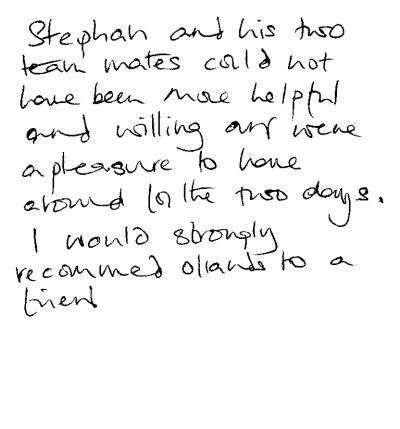 Stephan and his two
team mates could not
have been more helpful
and willing and were
a pleasure to have
around for the two days.
I would strongly
recommed ollands to a
friend